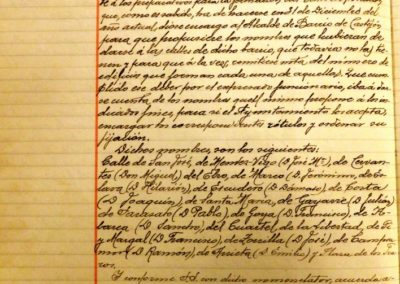 que, como es sabido, ha de hacerse en 31 de Diciembre del
año actual, dirive encargo al Alcalde de Barrio de Castejón
para que propusiere los nombres que hubieran de
darse á las calles de dicho barrio, que todavia no los tie-
nen y para que á la vez, remitiera nota del número de
edificios que forman cada una de aquellas. Que cum-
plido ese deber por el expresado funcionario, iba á dar-
se cuenta de los nombres que el mismo propone á los in-
dicados fines, para si el Ayuntamiento los acepta,
encargar los correspondientes rótulos y ordenar su
fijación.
Dichos nombres son los siguientes:
Calle de San José, de Mendez-Vigo (D. José Mª), de Cervan-
tes (Don Miguel), del Ebro, de Marco (D. Jerónimo), de Es-
lava (D. Hilarión), de Escudero (D. Dámaso), de Costa
(D. Joaquin), de Santa María, de Gayarre (D. Julián)
de Sarasate (D. Pablo), de Goya (D. Francisco), de
(D. Sandro), del Cuartel, de la Libertad, de Pi
y Margal (D. Francisco), de Zorrilla (D. José), de Campoa-
mor (D. Ramón), de (D. Emilio) y Plaza de los Fue-
ros.
Y conforme S.S. con dicho nomenclator, acuerda